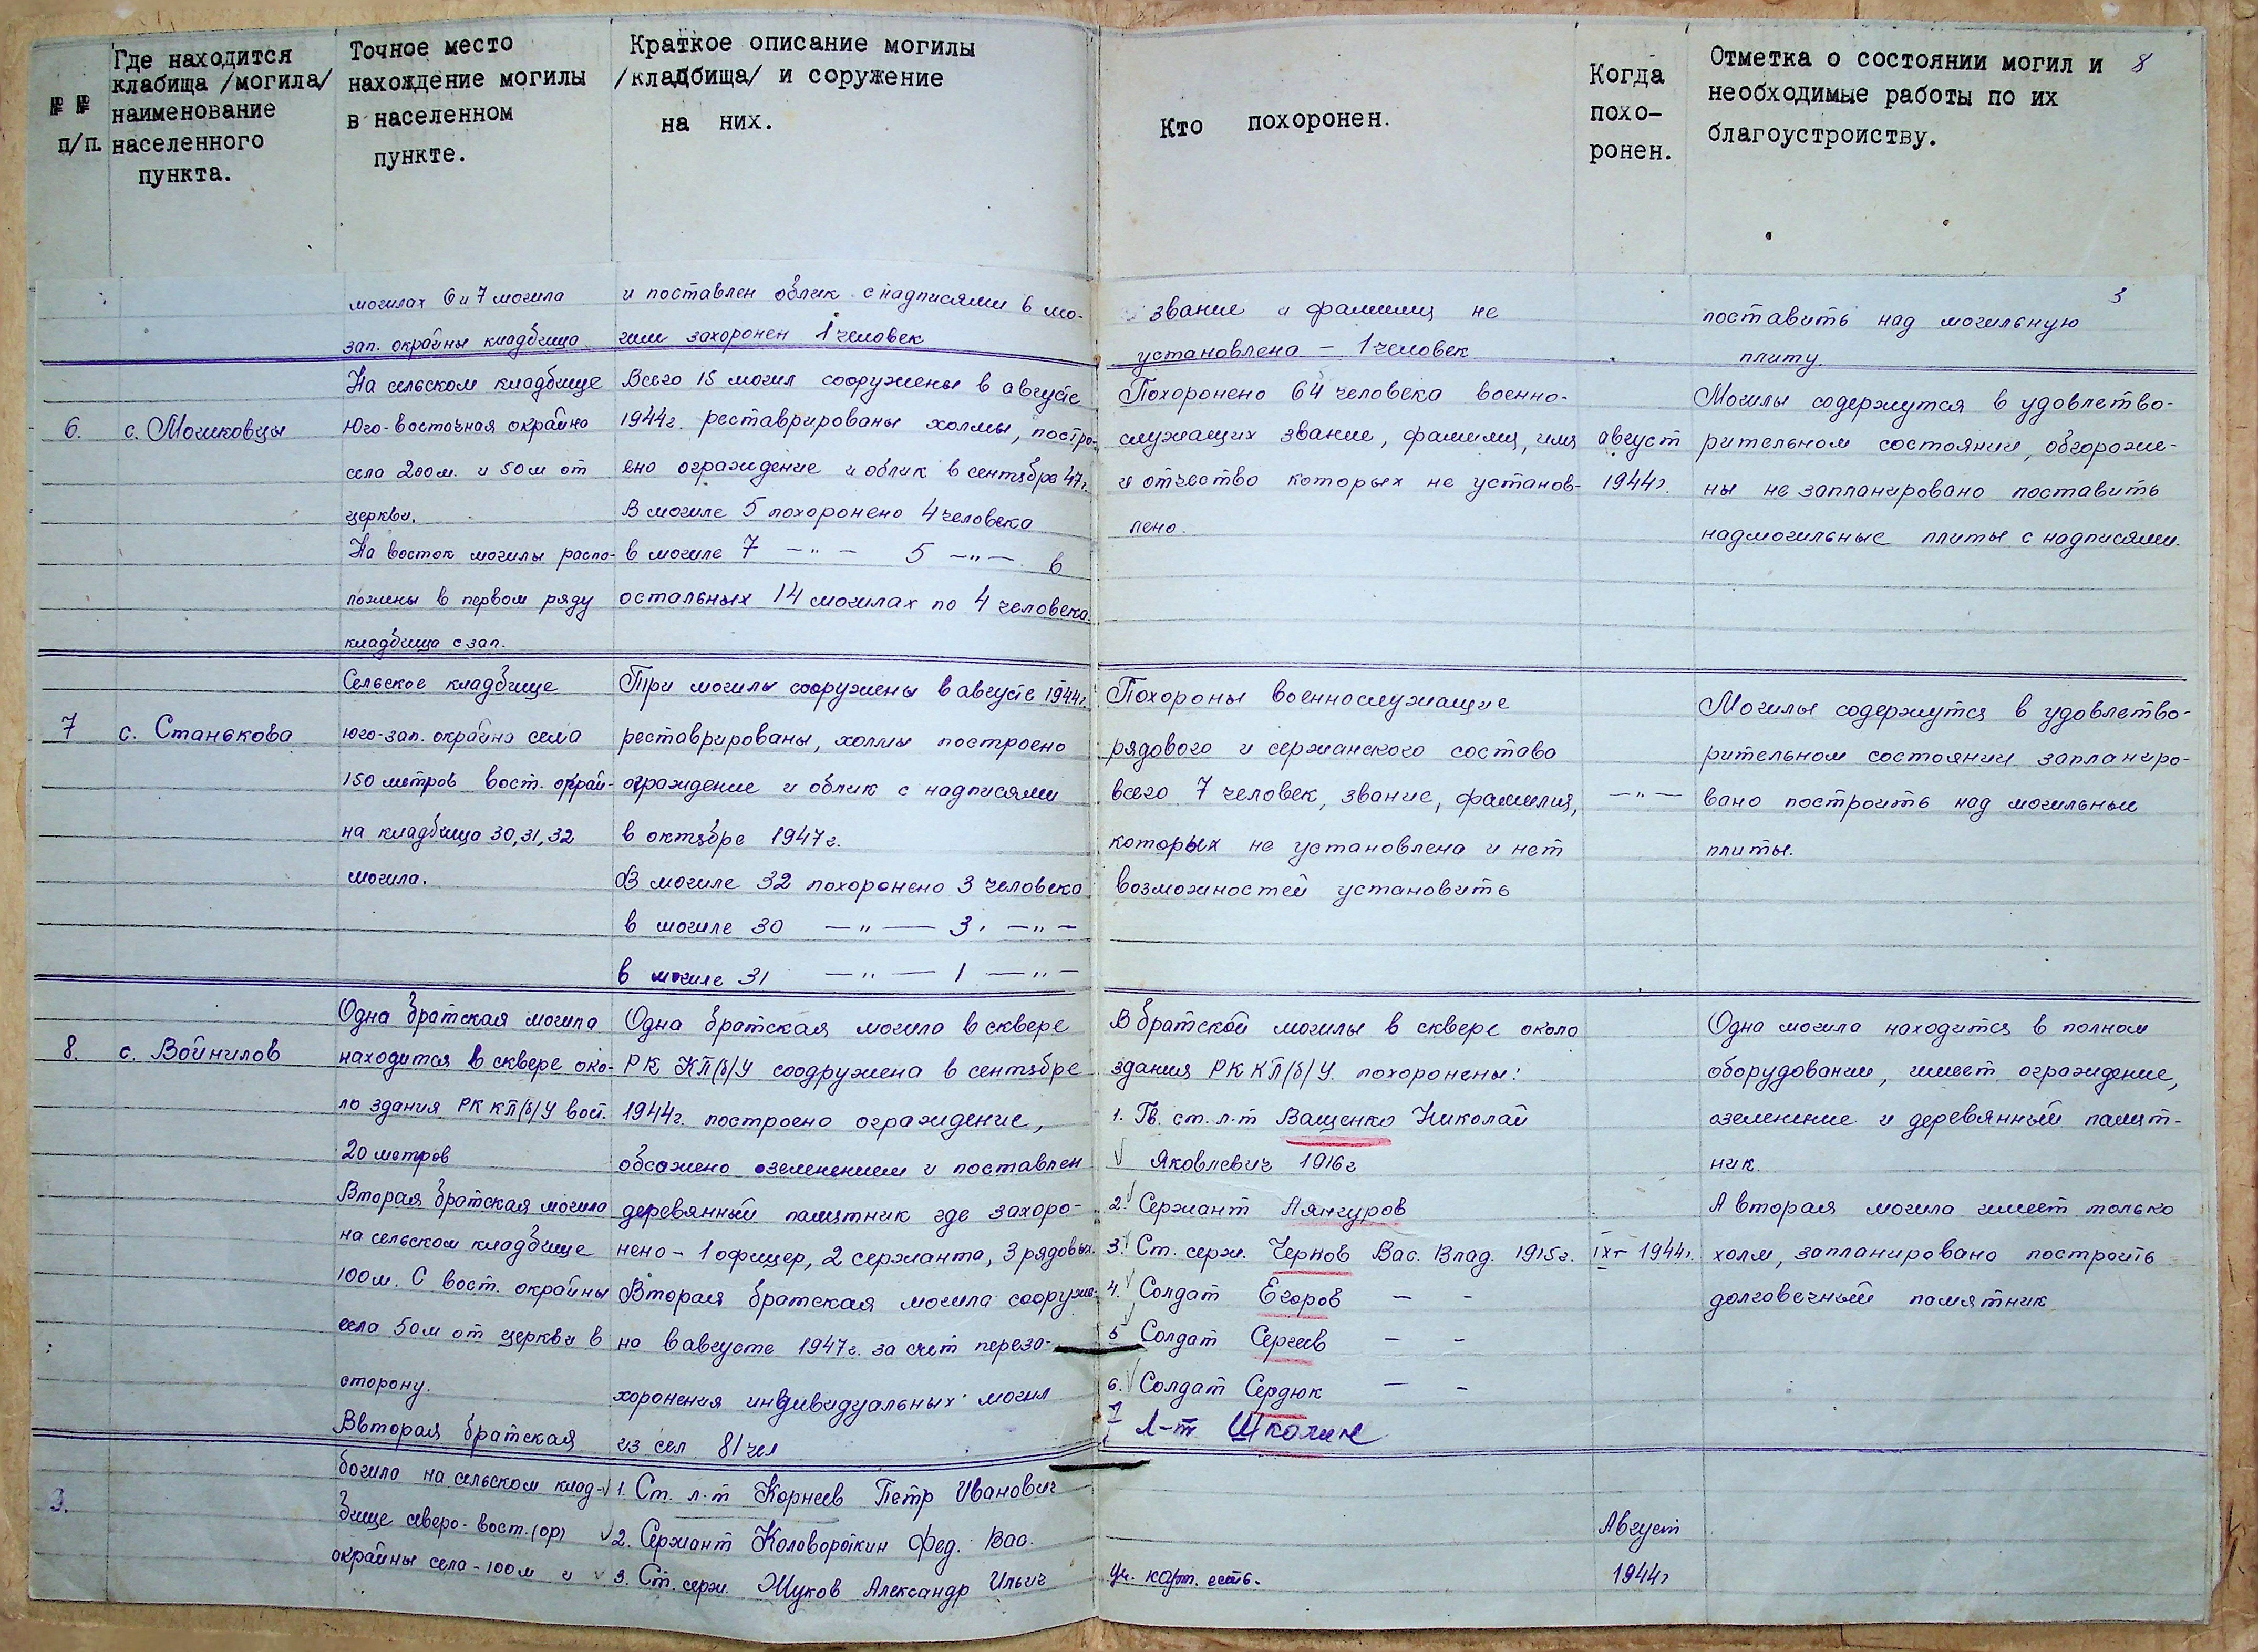 № № п/п.
Где находится
клабища /могила/
наименование
населенного
пункта.
Точное место
нахождение могилы
в населенном
пункте.
Краткое описание могилы
/кладбища/ и соружение
на них.
Кто похоронен.
Когда
похо-
ронен.
Отметка о состоянии могил и
необходимые работы по их
благоустроиству.
8
3
могилах 6 и 7 могила
зап. окрайны кладбища
и поставлен облик с надписями в мо-
гили захоронен 1 человек
звание и фамилищ не
установлена - 1 человек
поставить над могильную
плиту.
6.
с. Могиковцы
На сельском кладбище
Юго-восточная окрайна
села 200м. и 50м от
церкви.
На восток могилы распо-
ложены в первом ряду
кладбища с зап.
Всего 15 могил сооружены в августе
1944г. реставрированы холмы, постро-
ено ограждение и облик в сентябре 47г.
В могиле 5 похоронено 4 человека
в могиле 7 -"- 5 -"- в
остальных 14 могилах по 4 человека.
Похоронено 64 человека военно-
служащих звание, фамилия, имя
и отчество которых не установ-
лено.
август
1944г.
Могилы содержутся в удовлетво-
рительном состоянии, обгороже-
ны не запланировано поставить
надмогильные плиты с надписями.
7
с. Станькова
Сельское кладбище
юго-зап. окрайна села
150 метров вост. окрай-
на кладбища 30,31,32
могила.
Три могилы сооружены в августе 1944г.
реставрированы, холмы построено
ограждение и облик с надписями
в октябре 1947г.
В могиле 32 похоронено 3 человека
в могиле 30 -"- 3 -"-
в могиле 31 -"- 1 -"-
Похороны военнослужащие
рядового и сержанского состава
всего 7 человек, звание, фамилия,
которых не установлена и нет
возможностей установить
-"-
Могилы содержутся в удовлетво-
рительном состоянии запланиро-
вано построить над могильные
плиты.
8.
с. Войнилов
Одна братская могила
находится в сквере око-
ло здания РК КП/б/У вой.
20 метров
Вторая братская могила
на сельском кладбище
100м. С вост. окрайны
села 50м от церкви в
сторону.
Одна братская могила в сквере
РК КП/б/У соодружена в сентябре
1944г. построено ограждение,
обсажено озеленением и поставлен
деревянный памятник где захоро-
нено - 1 офицер, 2 сержанта, 3 рядовых.
Вторая братская могила сооруже-
на в августе 1947г. за счёт переза-
хоронения индивидуальных могил
из сел 81 чел
В братской могилы в сквере около
здания РК КП/б/У. похоронены:
1. Гв. ст. л-т Ващенко Николай
Яковлевич 1916г
2. Сержант Лянгуров
3. Ст. серж. Чернов Вас. Влад. 1915г.
4. Солдат Егоров - -
5 Солдат Сергеев - -
6. Солдат Сердюк - -
7 л-т Шкалин
IX- 1944г.
Одна могила находится в полном
оборудовании, имеет ограждение,
озеленение и деревянный памят-
ник.
А вторая могила имеет только
холм, запланировано построить
долговечный памятник
9.
Ввторая братская
богила на сельском клад-
бище северо-вост. (ор)
окрайны села - 100м и
1. Ст. л-т Корнеев Петр Иванович
2. Сержант Коловороткин Фед. Вас.
3. Ст. серж. Жуков Александр Ильич
Уч. карт. есть.
Август
1944г